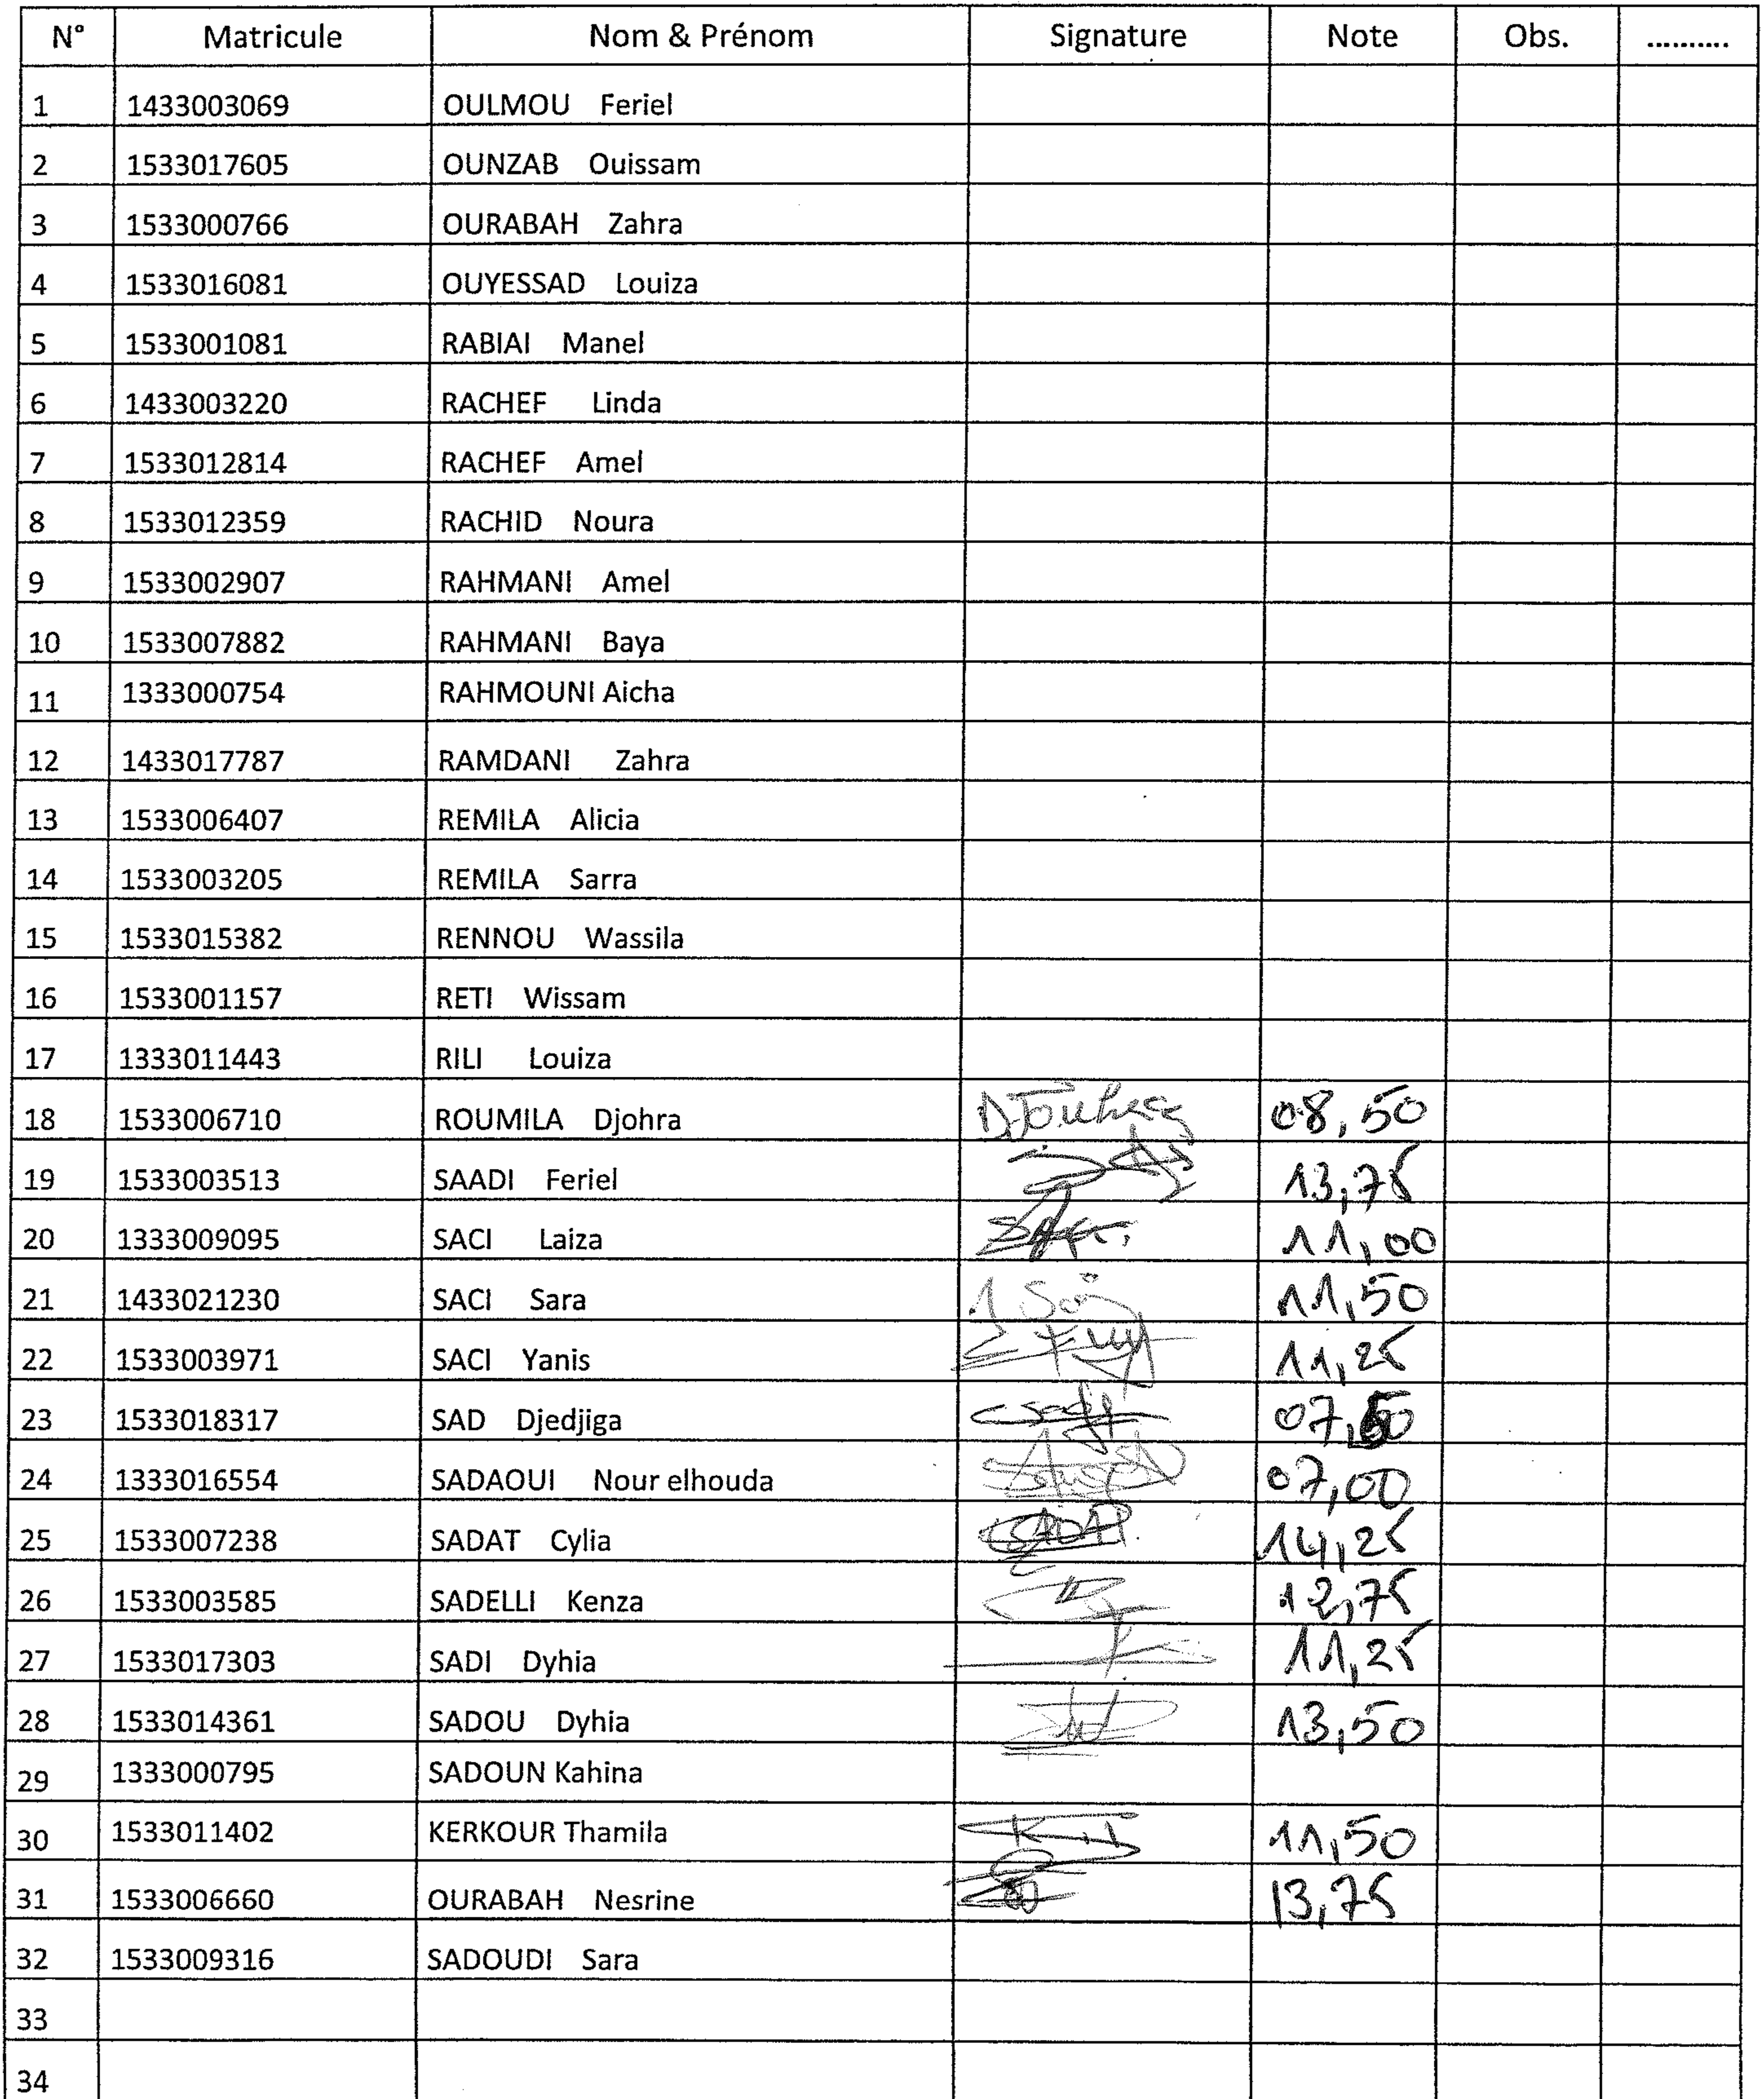 N° Matricule Nom & Prénom Signature Note Obs. ..........
1 1433003069 OULMOU Feriel
2 1533017605 OUNZAB Ouissam
3 1533000766 OURABAH Zahra
4 1533016081 OUYESSAD Louiza
5 1533001081 RABIAI Manel
6 1433003220 RACHEF Linda
7 1533012814 RACHEF Amel
8 1533012359 RACHID Noura
9 1533002907 RAHMANI Amel
10 1533007882 RAHMANI Baya
11 1333000754 RAHMOUNI Aicha
12 1433017787 RAMDANI Zahra
13 1533006407 REMILA Alicia
14 1533003205 REMILA Sarra
15 1533015382 RENNOU Wassila
16 1533001157 RETI Wissam
17 1333011443 RILI Louiza
18 1533006710 ROUMILA Djohra 08,50
19 1533003513 SAADI Feriel 13,75
20 1333009095 SACI Laiza 11,00
21 1433021230 SACI Sara 11,50
22 1533003971 SACI Yanis 11,25
23 1533018317 SAD Djedjiga
24 1333016554 SADAOUI Nour elhouda 07,00
25 1533007238 SADAT Cylia 14,25
26 1533003585 SADELLI Kenza 12,75
27 1533017303 SADI Dyhia 11,25
28 1533014361 SADOU Dyhia 13,50
29 1333000795 SADOUN Kahina
30 1533011402 KERKOUR Thamila 11,50
31 1533006660 OURABAH Nesrine 13,75
32 1533009316 SADOUDI Sara
33
34